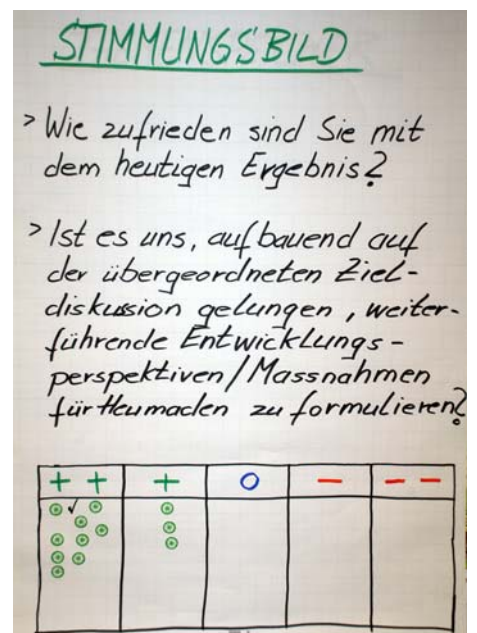 STIMMUNGSBILD
> Wie zufrieden sind Sie mit
dem heutigen Ergebnis?
> Ist es uns, aufbauend auf
der übergeordneten Ziel-
diskussion gelungen, weiter-
führende Entwicklungs-
perspektiven/Massnahmen
für Heumaden zu formulieren?
+ + + O — — —